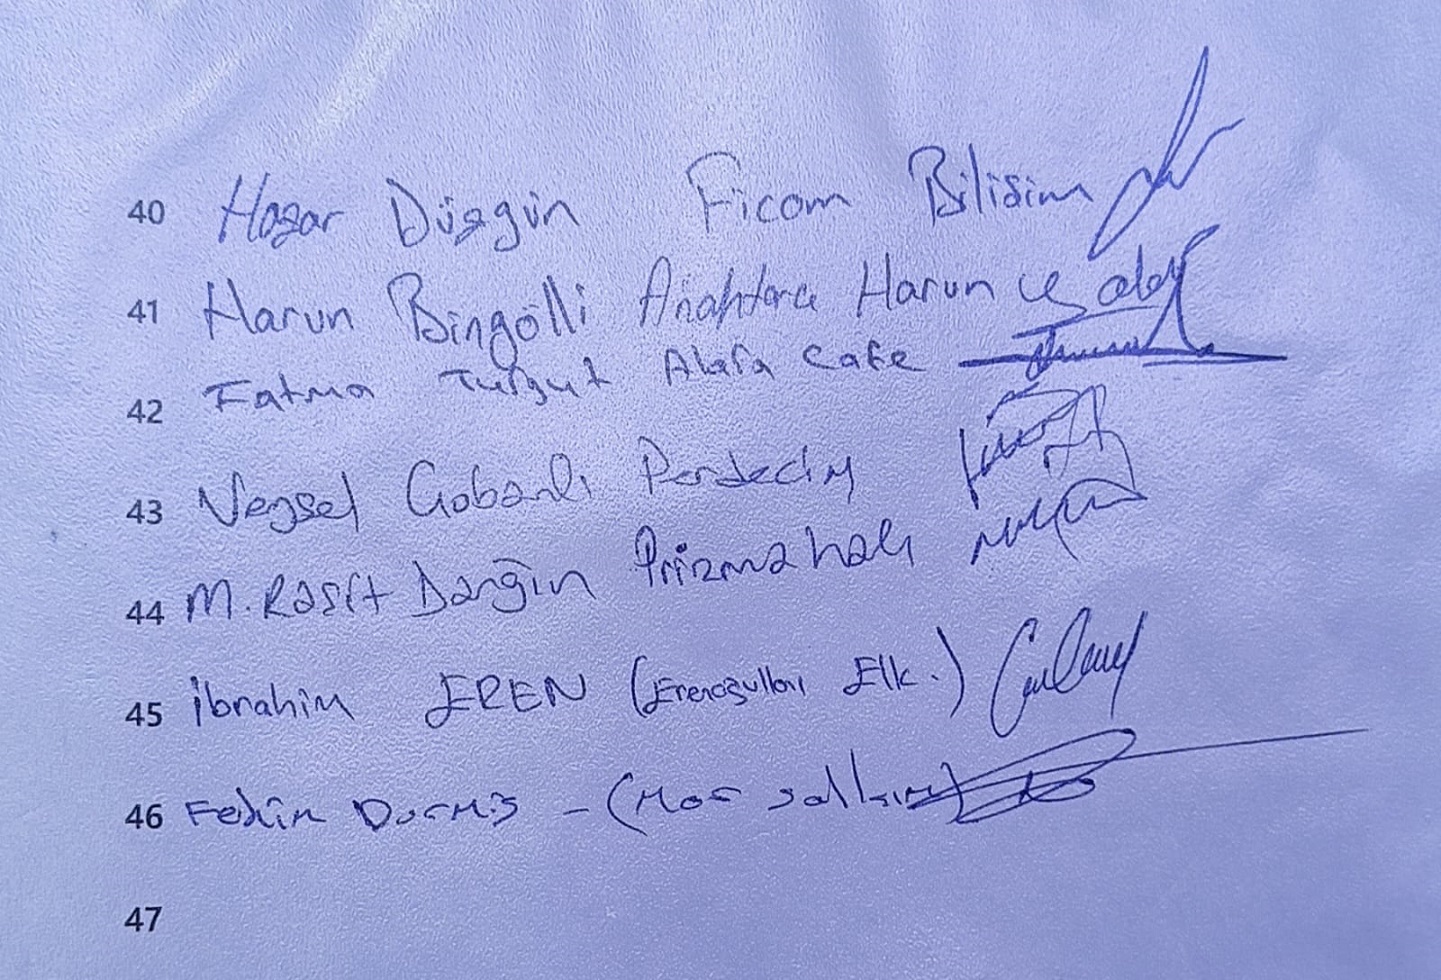 40 Hazar Düzgün Ficom Bilisim
41 Harun Bingölli Anahtarcı Harun
42 Fatma Turgut Alafa Cafe
43 Veysel Çobanlı Perdecim
44 M. Raşit Dargın Prizma halı
45 İbrahim EREN (Erenoğulları Elk.)
46 Fehim Durmş - (Mor salkım)
47